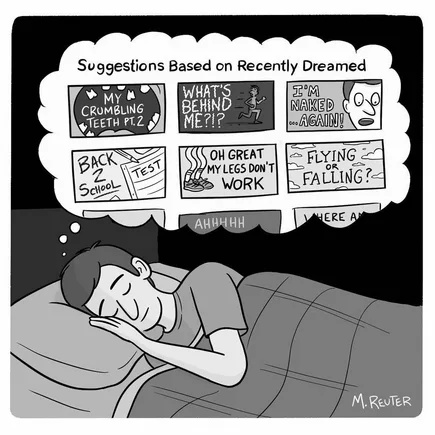 Suggestions Based on Recently Dreamed
MY
CRUMBLING
TEETH PT. 2
WHAT'S
BEHIND
ME?!?
I'M
NAKED
...AGAIN!
BACK
2
SCHOOL
TEST
OH GREAT
MY LEGS DON'T
WORK
FLYING
OR
FALLING?
AHHHHH
WHERE
M. REUTER